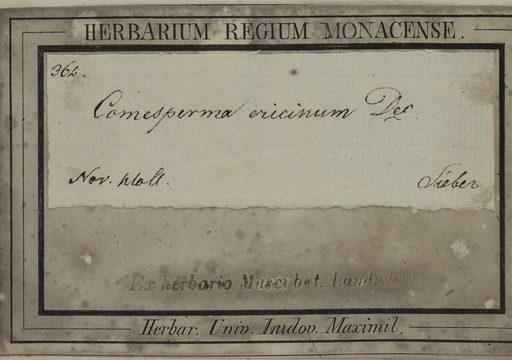 HERBARIUM REGIUM MONACENSE.
362.
Comesperma ericinum Dec.
Nov. Holl. Sieber
Ex herbario Musei bot. Landish.
Herbar. Univ. Ludov. Maximil.